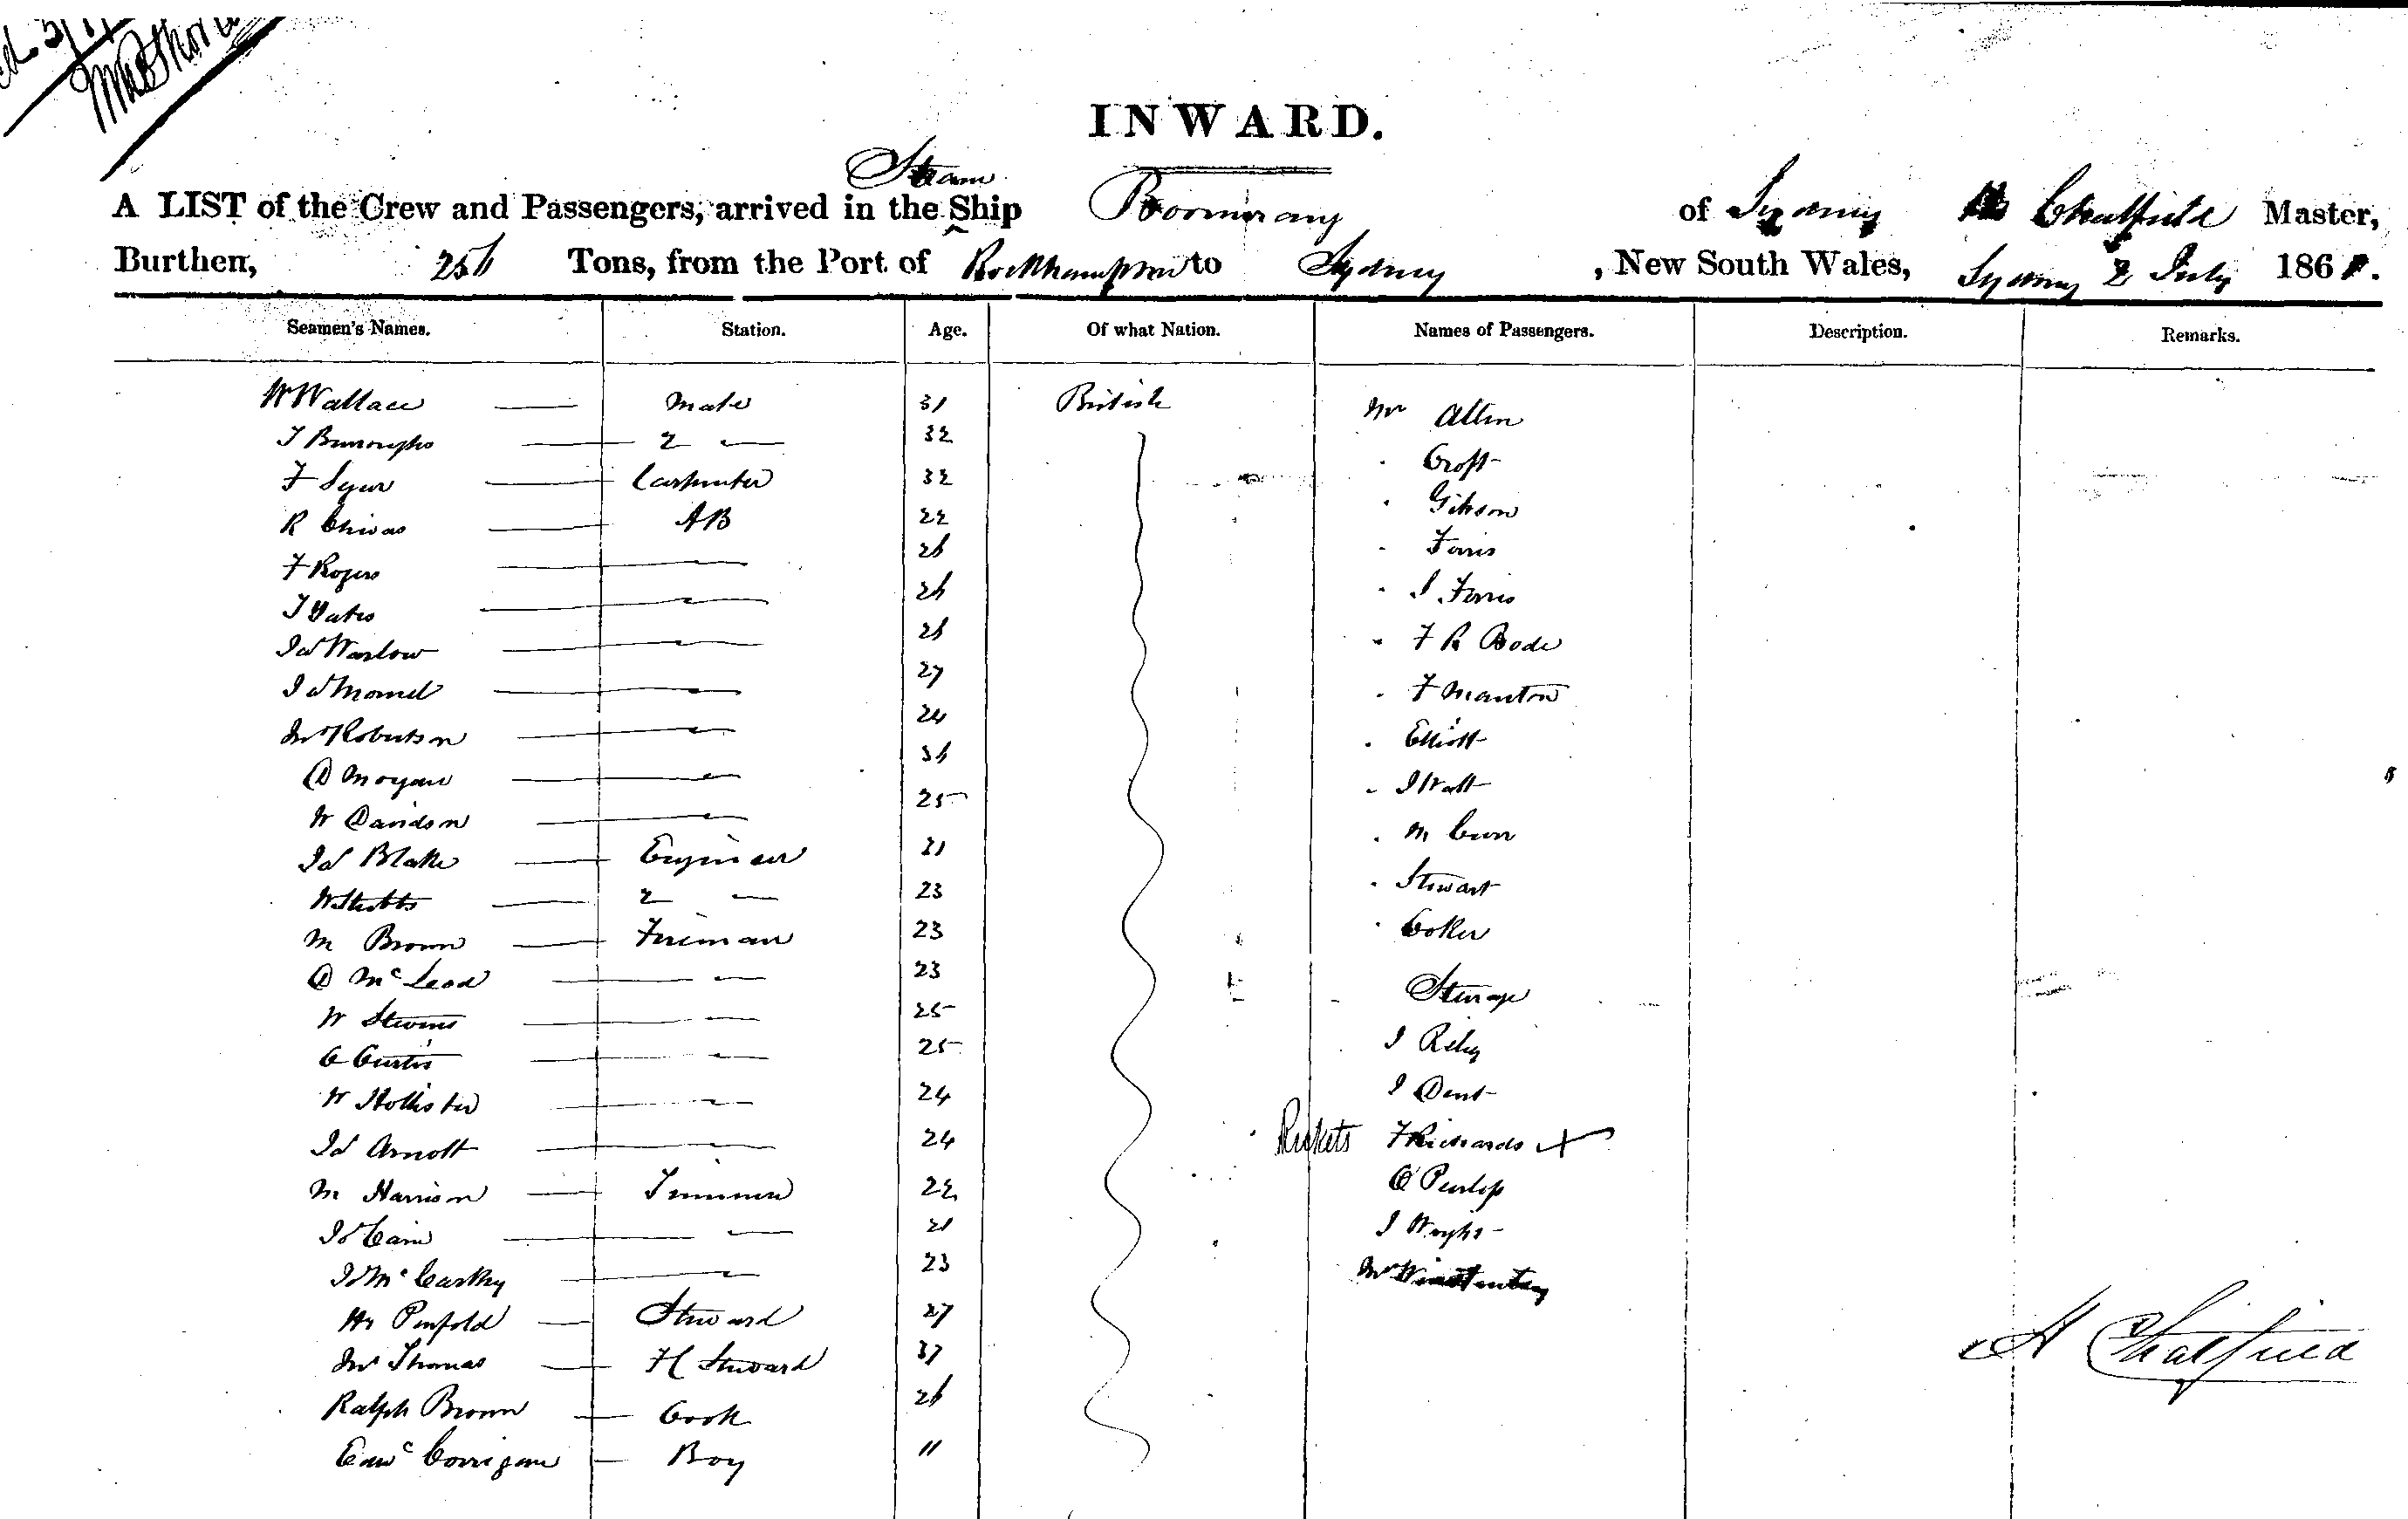 INWARD.
Steam
A LIST of the Crew and Passengers, arrived in the Ship Boomerang of Sydney Chatfield Master,
Burthen, 256 Tons, from the Port of Rockhampton to Sydney, New South Wales, Sydney 2 July 186
Seamen's Names. Station. Age. Of what Nation. Names of Passengers. Description. Remarks.
W Wallace — Mate 31 British Mr Allen
T Burroughs — 2 — 32 " Croft
F — Carpenter 32 " Gibson
R Chivas — AB 22 " Ferris
F Rogers — 26 " J Ferris
T Yates — 26 " F R Bode
Jas Warlow — 26 " F Manton
Jas — 27 " Elliott
Jno Robertson — 24 " J Watt
D Morgan — 36 " M
W Davidson — 25 " Stewart
Jas Blake — Engineer 31 " Coker
W Stubbs — 2 — 23
M Brown — Fireman 23 Steerage
D McLeod — 23 J Riley
W Stevens — 25 J Dent
C Curtis — 25 Rickets F Richards +
W Hollister — 24
Jas Arnott — 24 J Wright
M Harrison — Trimmer 22 Mr
Jas Cain — 21
Jas McCarthy — 23
Wr Penfold — Steward 27
Jno Thomas — F C Steward 37 H Chatfield
Ralph Brown — Cook 26
Corrigan — Boy 11